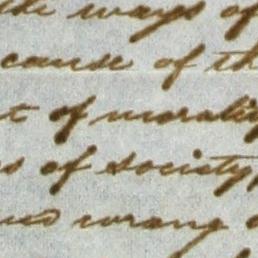 the ways of
cause of th
t of morality
s of society,
wrong